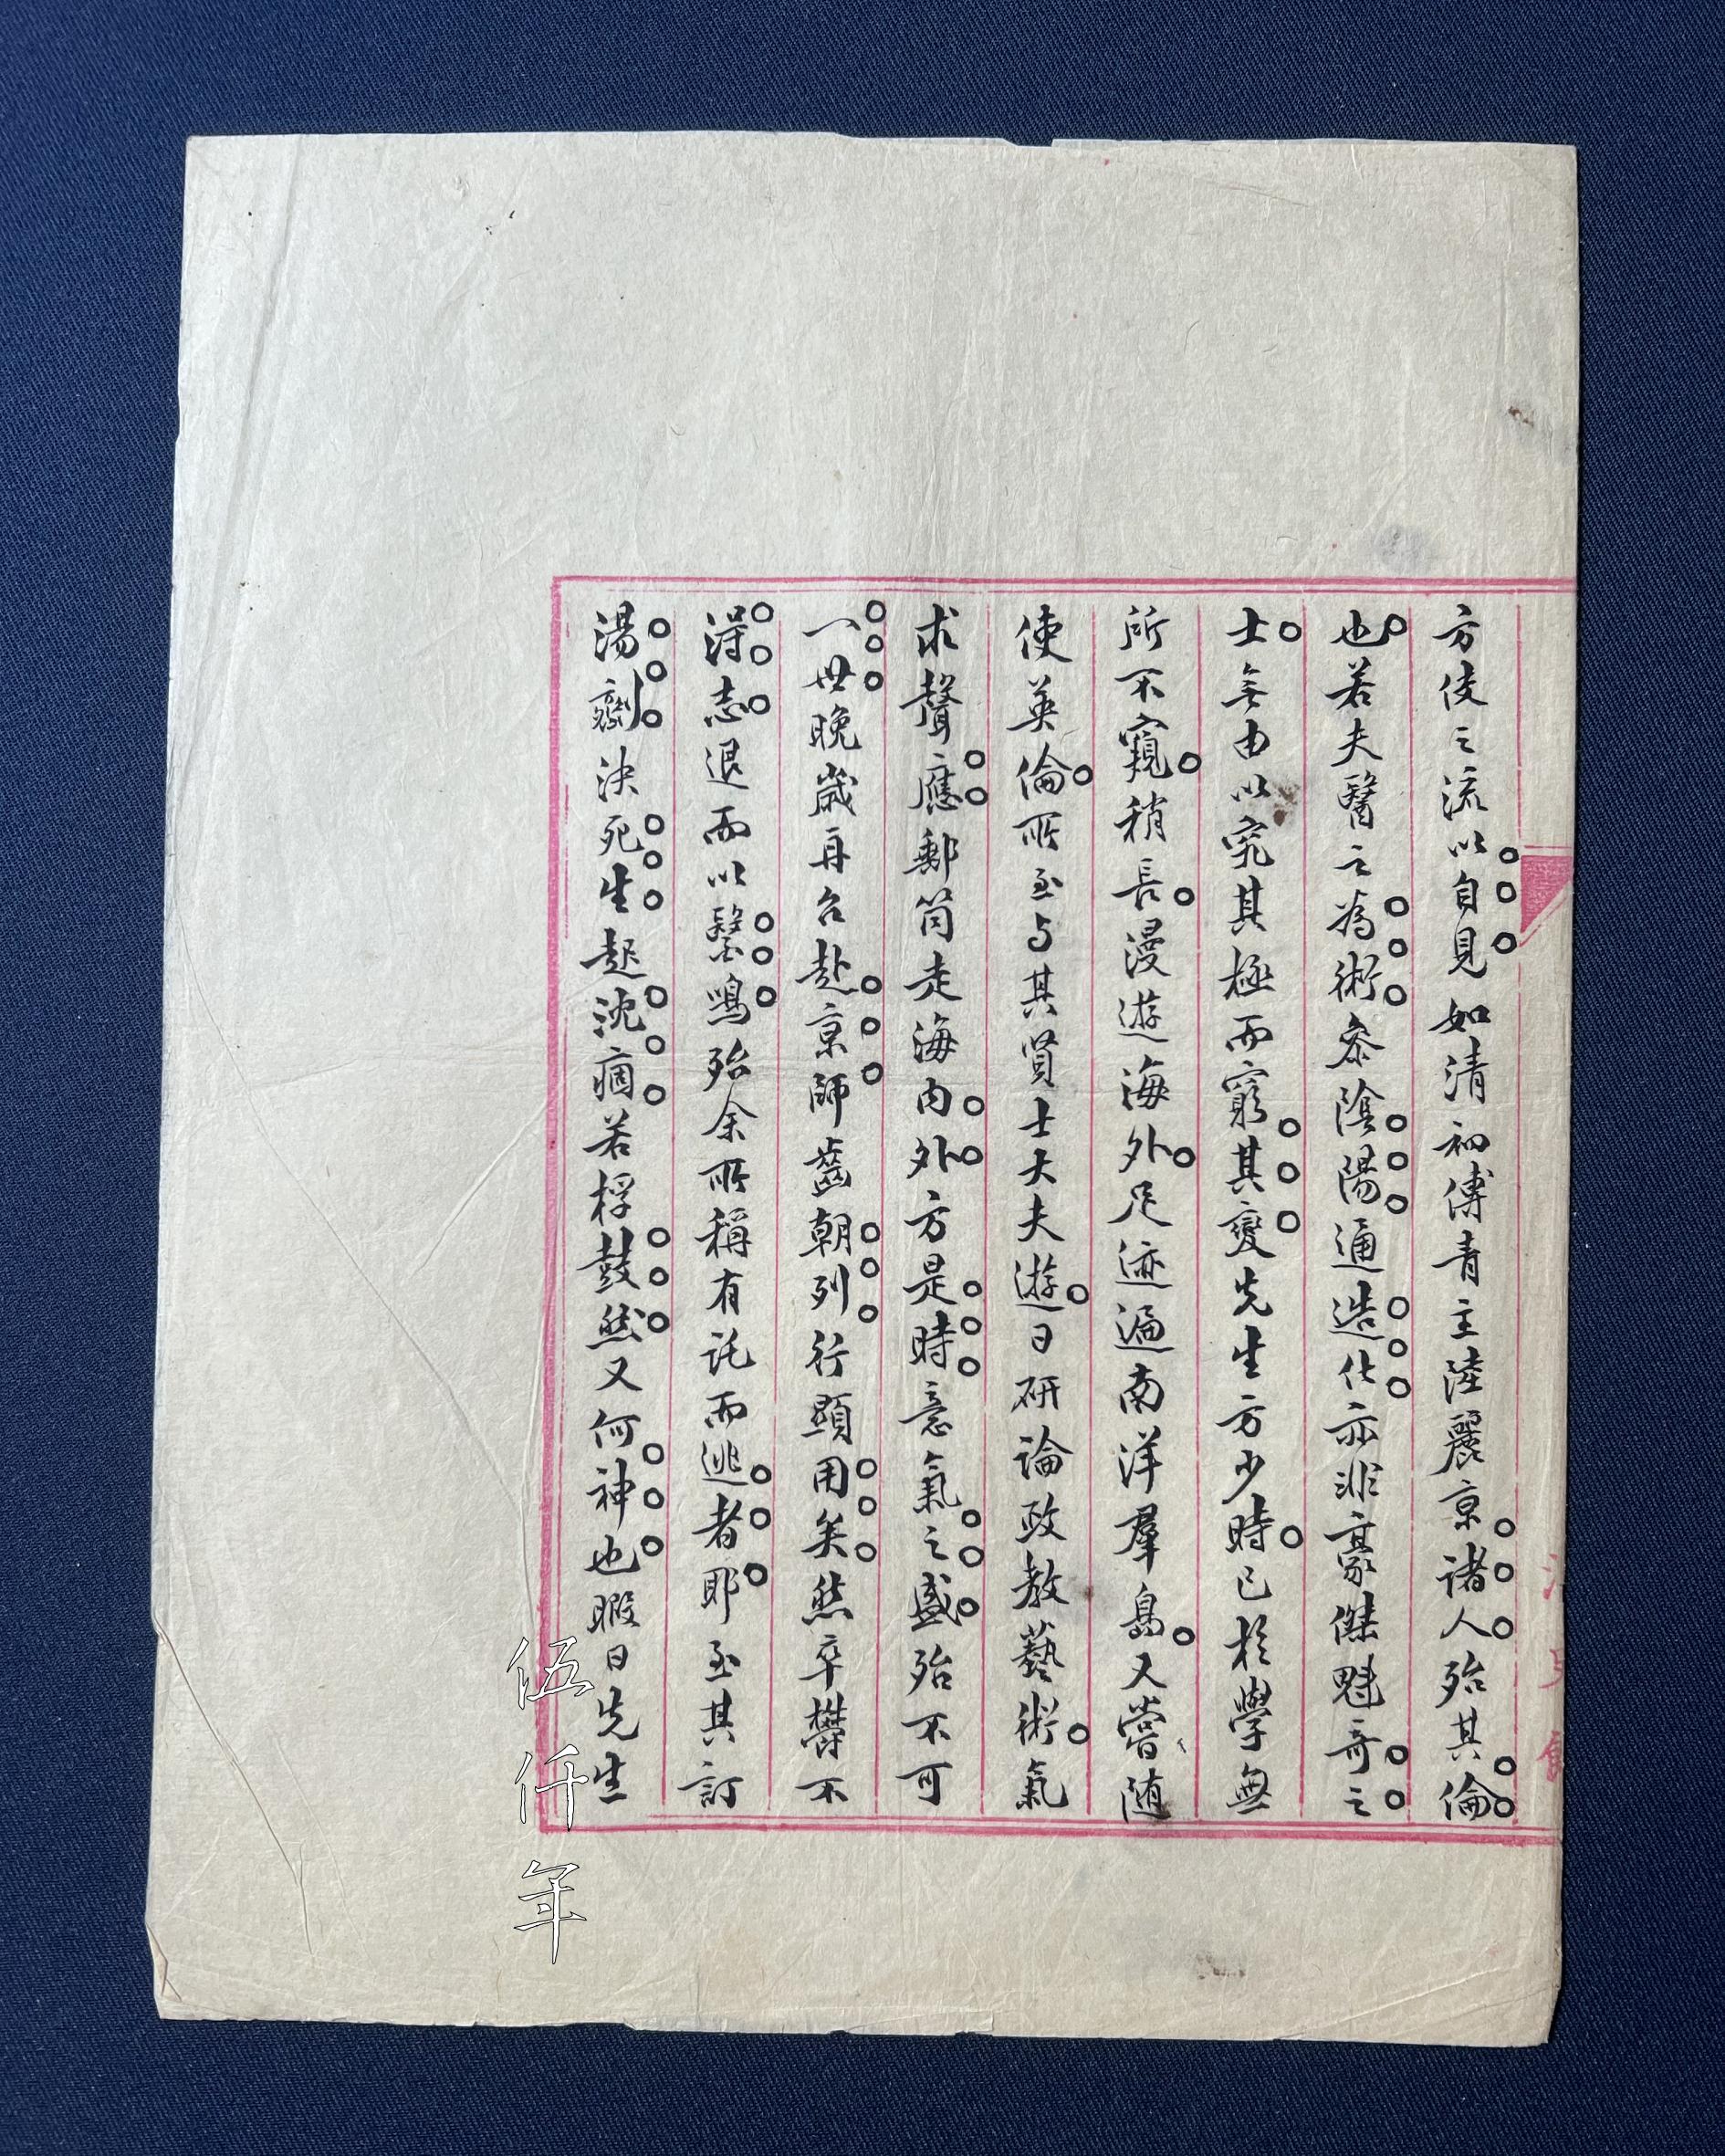 方伎之流以自見如清初傅青主陸麗京諸人殆其倫
也若夫醫之為術參陰陽通造化亦非豪傑魁奇之
士無由以究其極而窮其變先生方少時已於學無
所不窺稍長漫遊海外足迹遍南洋羣島又嘗随
使英倫所至与其賢士大夫遊日研論政教藝術氣
求聲應郵筒走海內外方是時意氣之盛殆不可
一世晚歲再召赴京師齒朝列行顯用矣然卒欝不
得志退而以毉鳴殆余所稱有託而逃者耶至其訂
湯劑決死生起沈痼若桴鼓然又何神也暇日先生
伍仟年